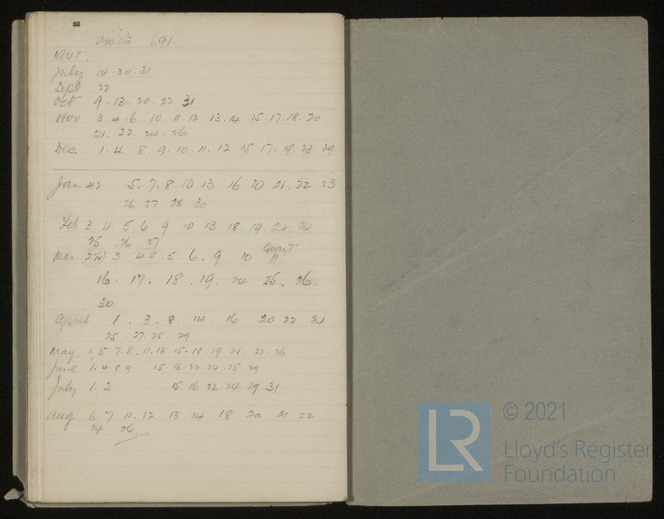 68
Visits 691.
1941.
July 14. 30. 31
Sept 22
Oct 9. 13. 20. 22. 31
Nov 3. 4. 6. 10. 11 12 13. 14. 15. 17. 18. 20
21. 22 24. 26
Dec. 1. 4. 8. 9. 10. 11. 12 15 17. 19. 23 29
Jan 42 5. 7. 8. 10 13 16 20 21. 22 23
26 27 28 30
Feb 3 4 5 6 9 10 13 18. 19. 20. 24
25 26 27
Mar. 3 4 5 6. 9 10 11
16. 17. 18. 19. 24 25. 26.
30
April 1. 3. 8. 14 16 20 22 24
25. 27. 28. 29
May 5 7. 8. 11. 13 15. 18 19 22. 26
June 1. 4. 8. 9 15 16. 22 24. 25. 29
July 1. 2 15. 16. 22 24. 29 31
Aug 6. 7 11. 12. 13 14 18 20 21 22
24 26.
LR © 2021
Lloyd's Register
Foundation